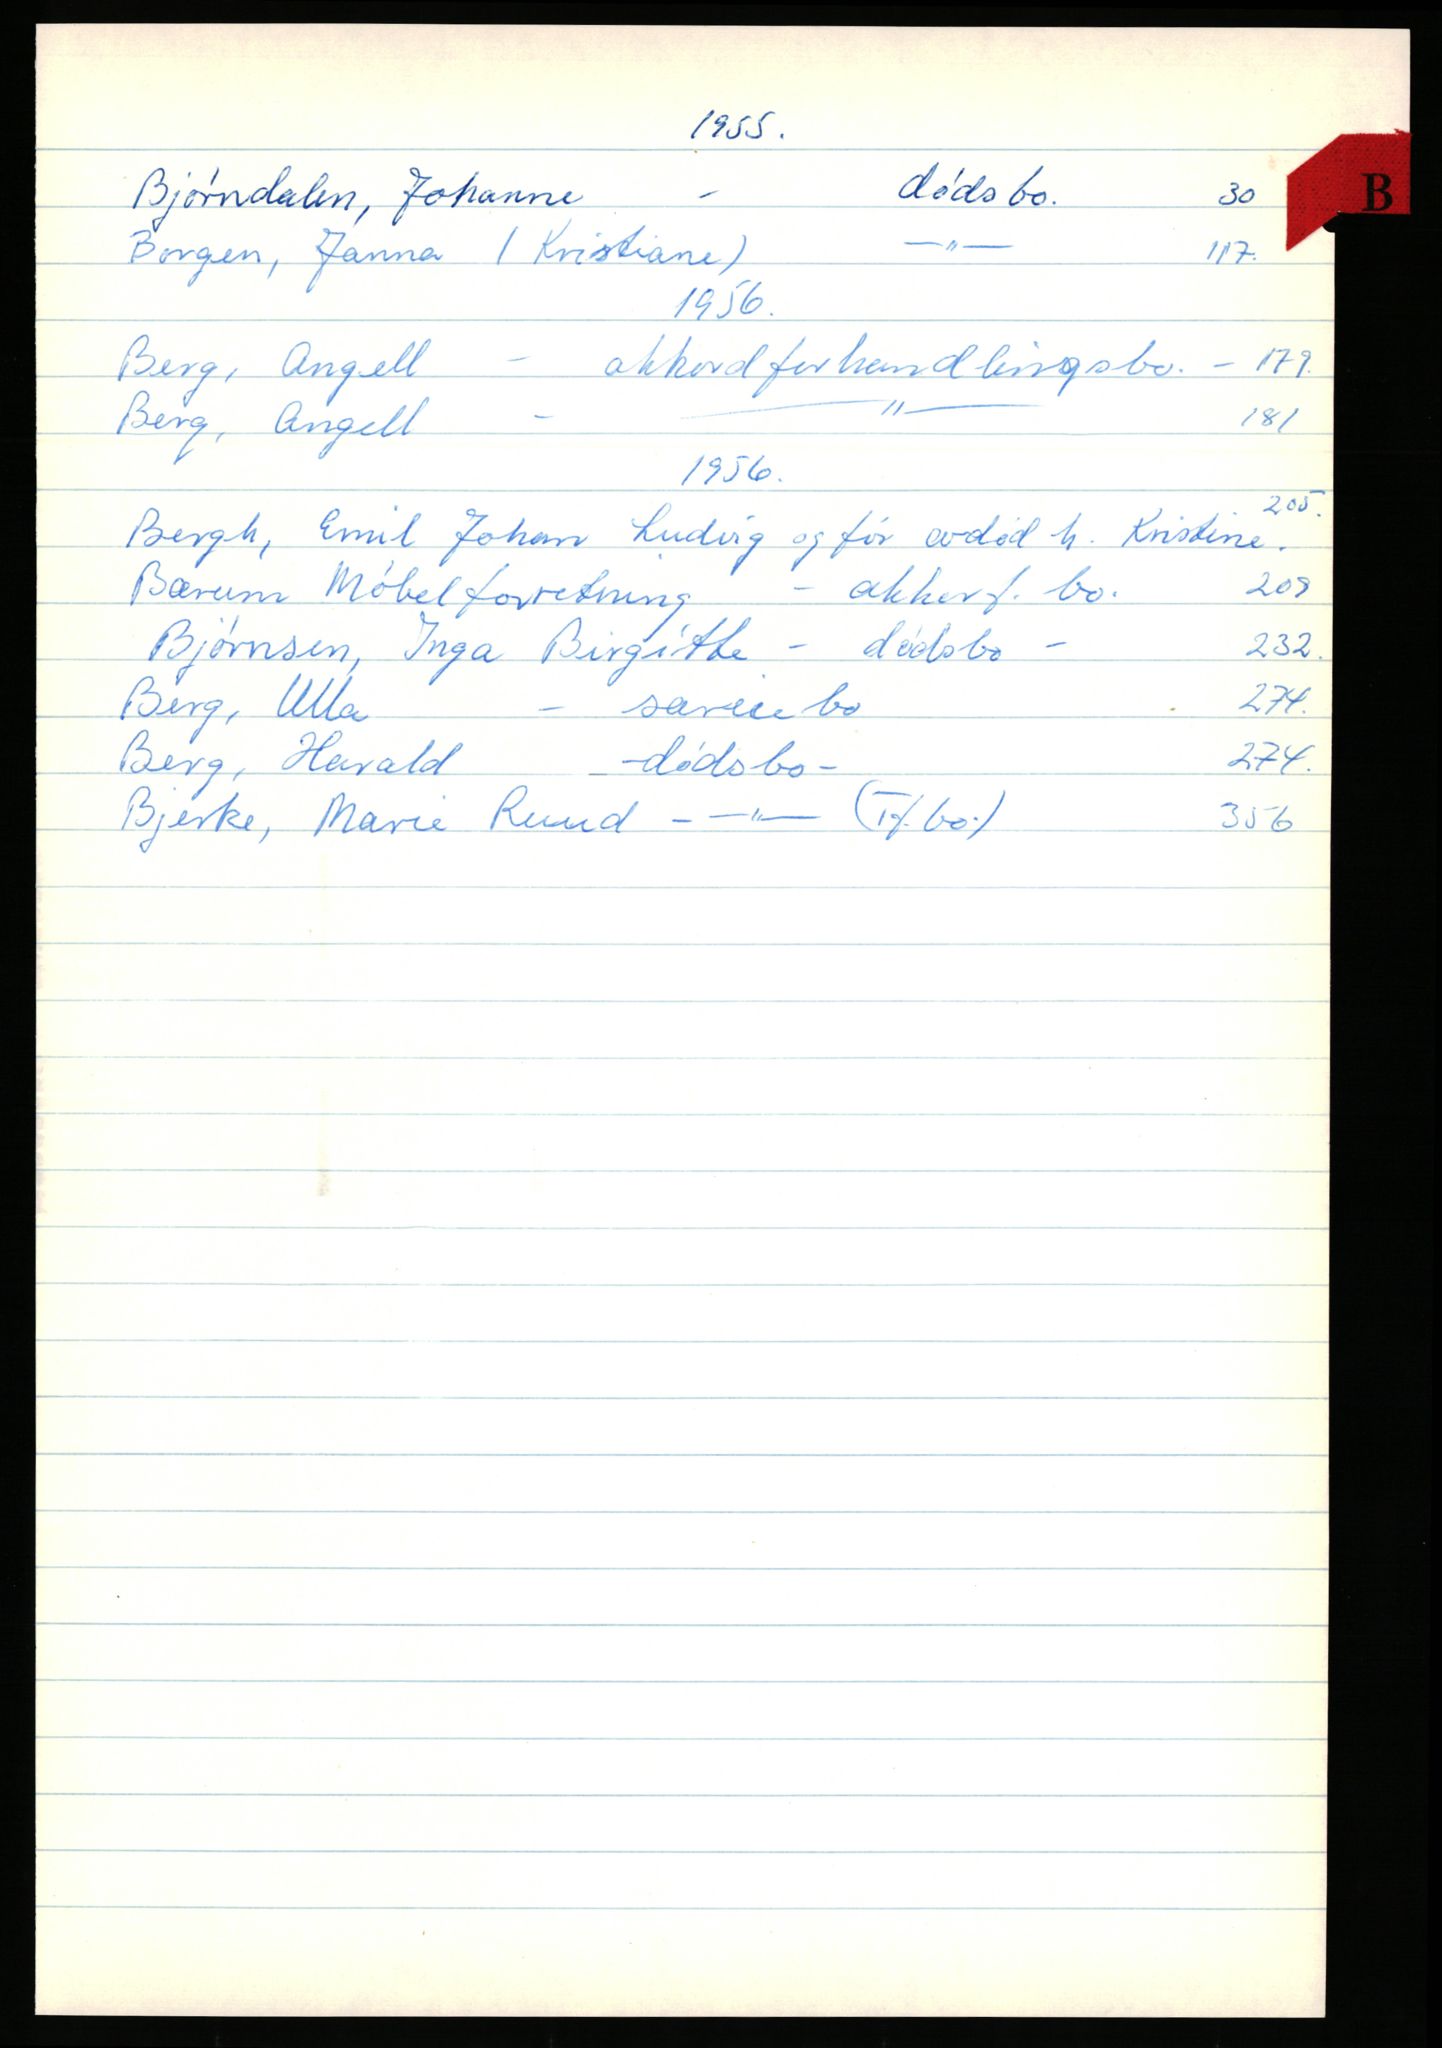 1955.
Björndalen, Johanne - dödsbo. 30
B
Borgen, Janna (Kristiane) —"— 117.
1956.
Berg, Angell - akkordforhandlingsbo. - 179.
Berg, Angell - —"— 181
1956.
205.
Bergh, Emil Johan Ludvig og för avdöd h. Kristine.
Bærum Möbelforretning - akkorf. bo. 209
Björnsen, Inga Birgitte - dödsbo - 232.
Berg, Ulla - bo 274.
Berg, Harald - dödsbo - 274.
Bjerke, Marie Ruud - —"— ( bo.) 356